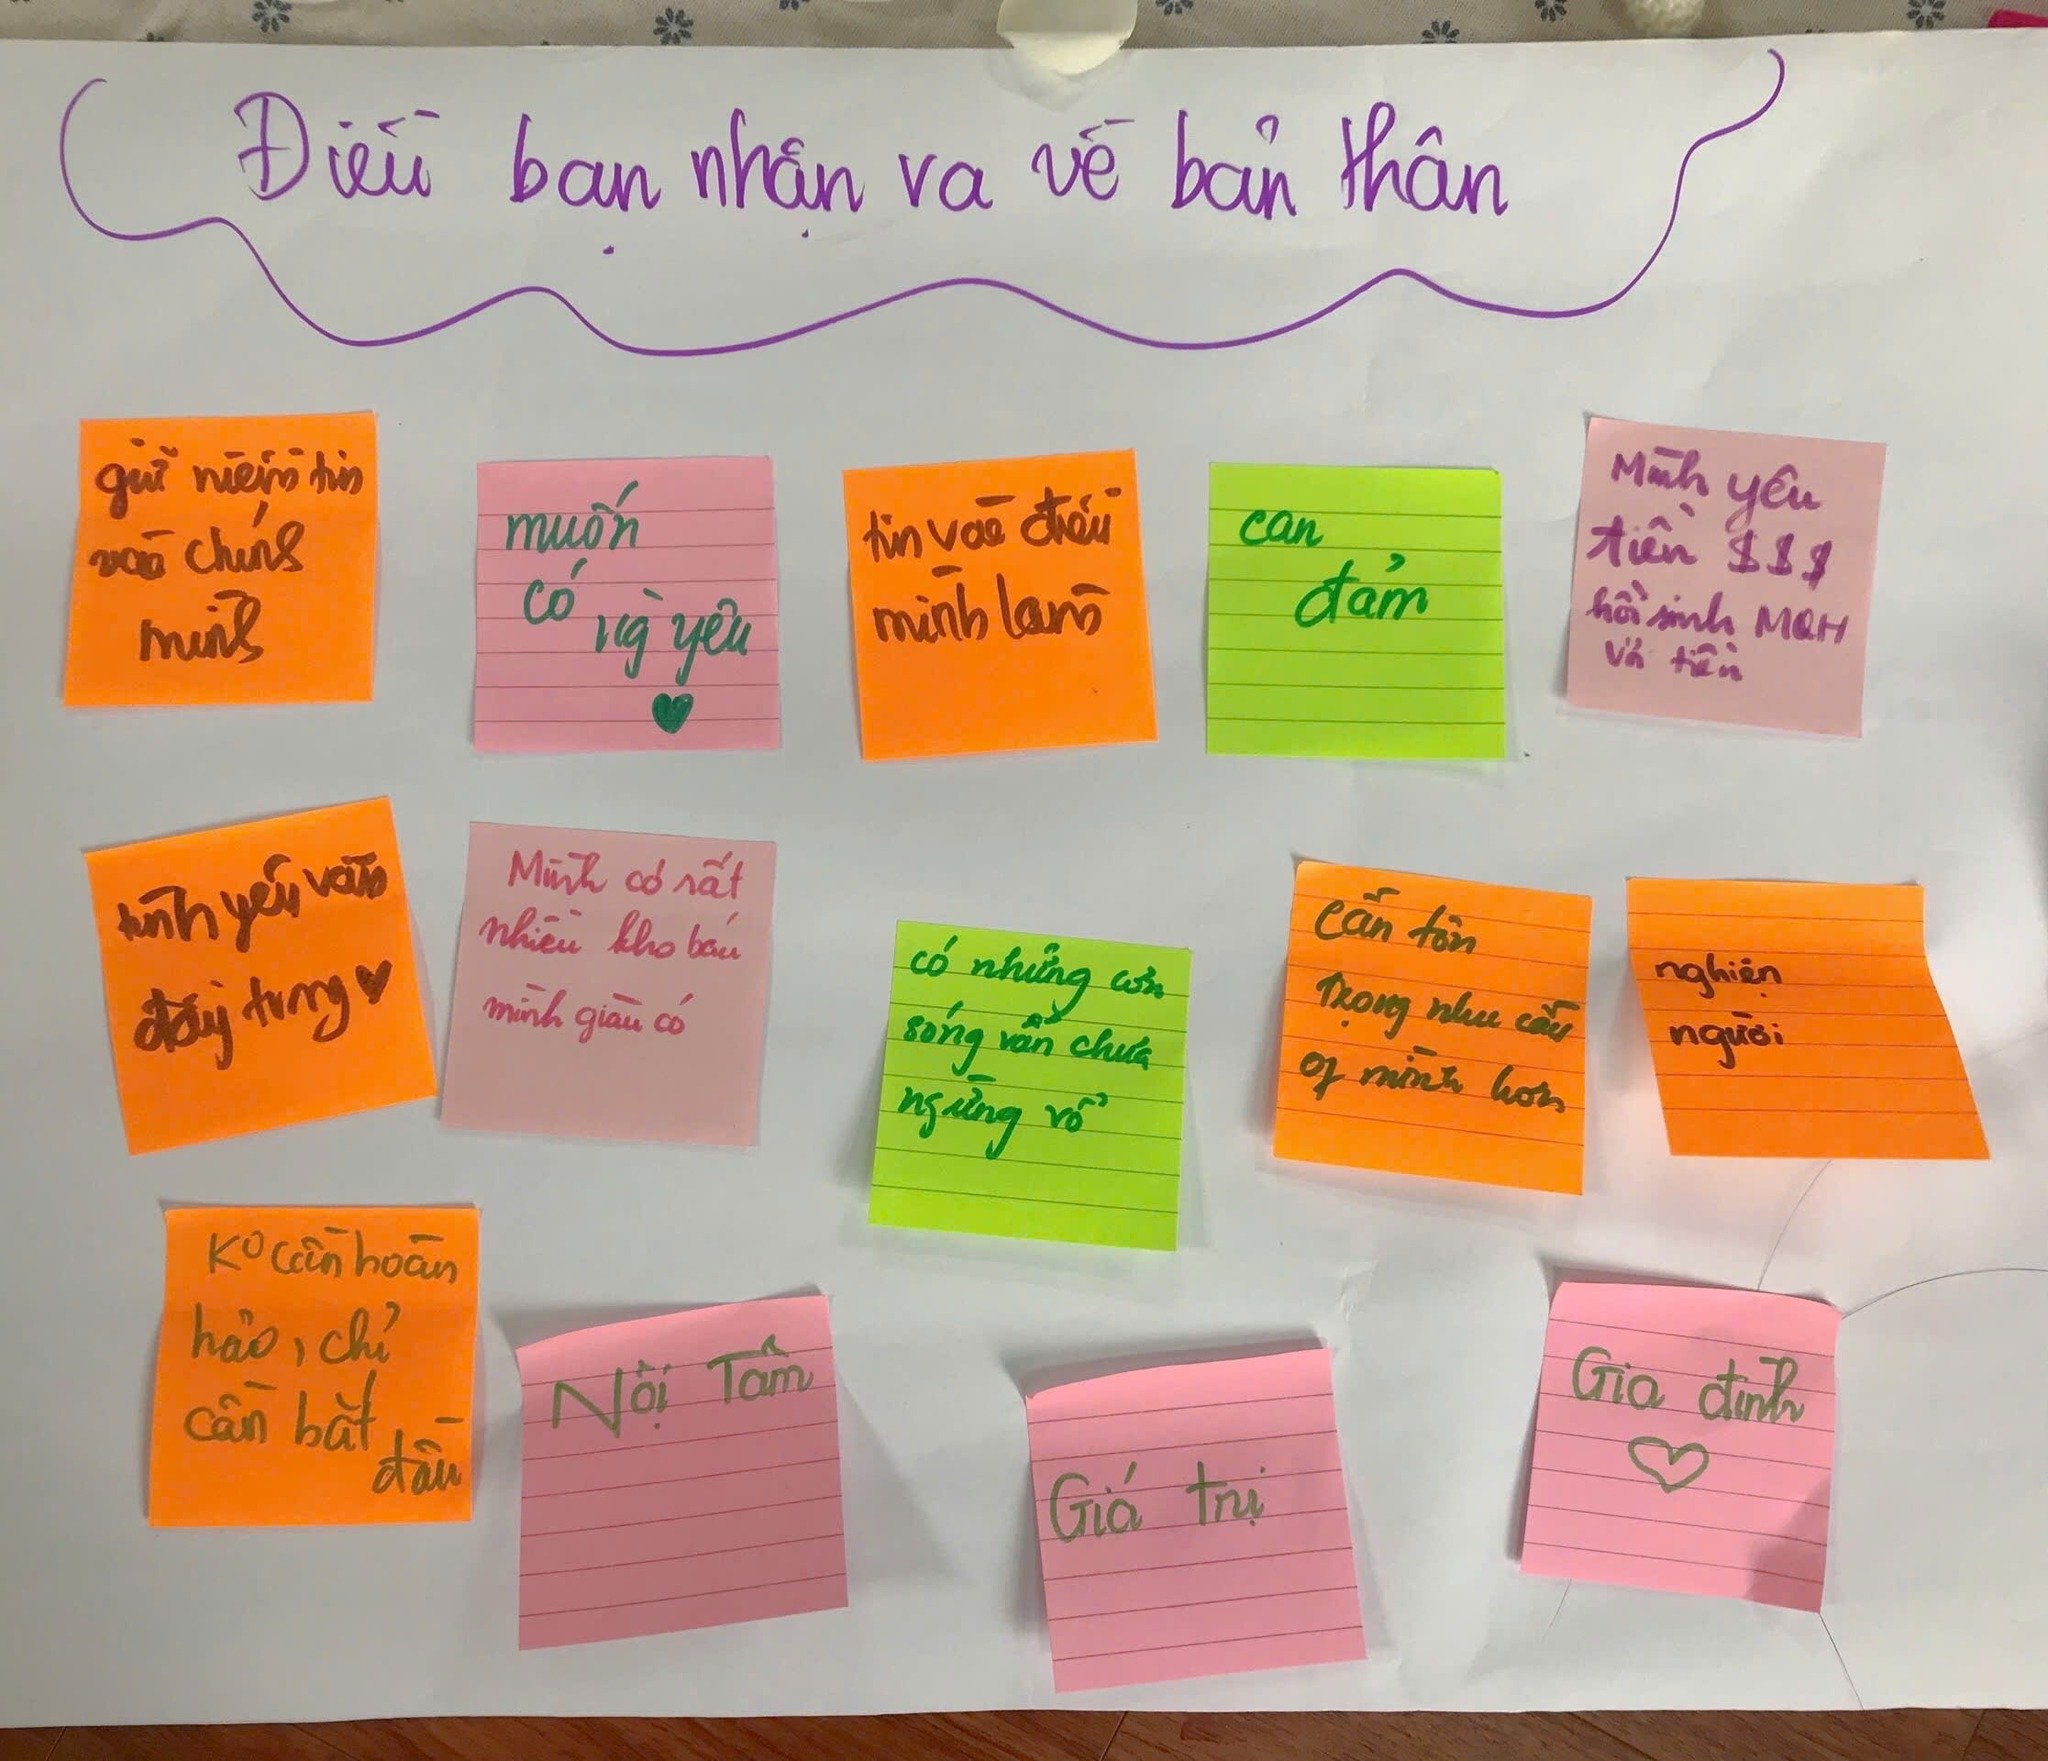 Điều bạn nhận ra về bản thân
gửi niềm tin
vào chính
mình
muốn
có ng yêu
tin vào điều
mình làm
can
đảm
Mình yêu
tiền $$$
hồi sinh MQH
với tiền
tình yêu vẫn
đong đầy trong
Mình có rất
nhiều kho báu
mình giàu có
có những cơn
sóng vẫn chưa
ngừng vỗ
cần tôn
trọng nhu cầu
of mình hơn
nghiện
người
Ko cần hoàn
hảo, chỉ
cần bắt
đầu
Nội Tâm
Giá trị
Gia đình